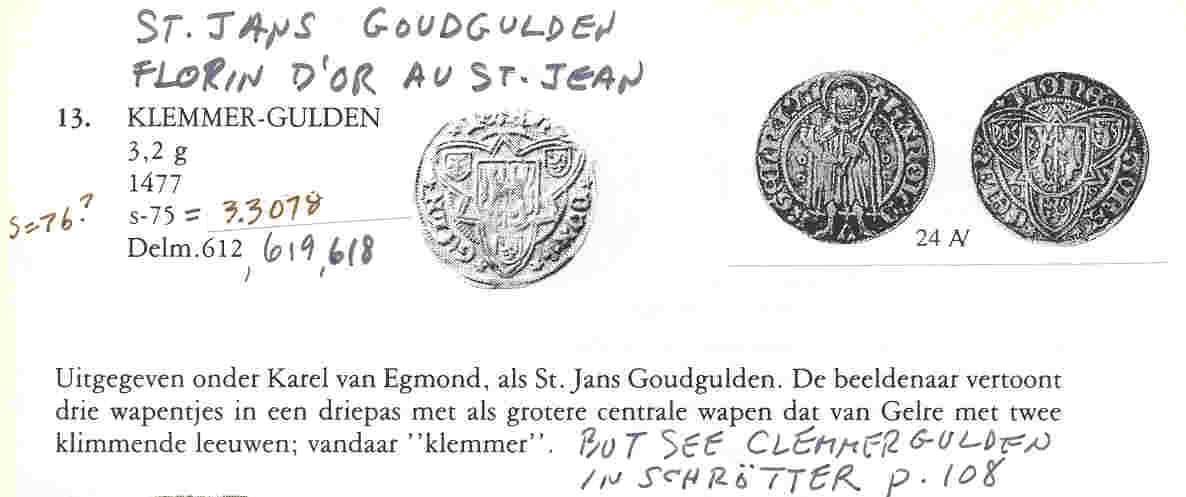 ST. JANS GOUDGULDEN
FLORIN D'OR AU ST. JEAN
13. KLEMMER-GULDEN
3,2 g
1477
s-75 = 3.3078
S=76?
Delm.612, 619, 618
24 AV
Uitgegeven onder Karel van Egmond, als St. Jans Goudgulden. De beeldenaar vertoont
drie wapentjes in een driepas met als grotere centrale wapen dat van Gelre met twee
klimmende leeuwen; vandaar ''klemmer''. BUT SEE CLEMMERGULDEN
IN SCHRÖTTER p. 108